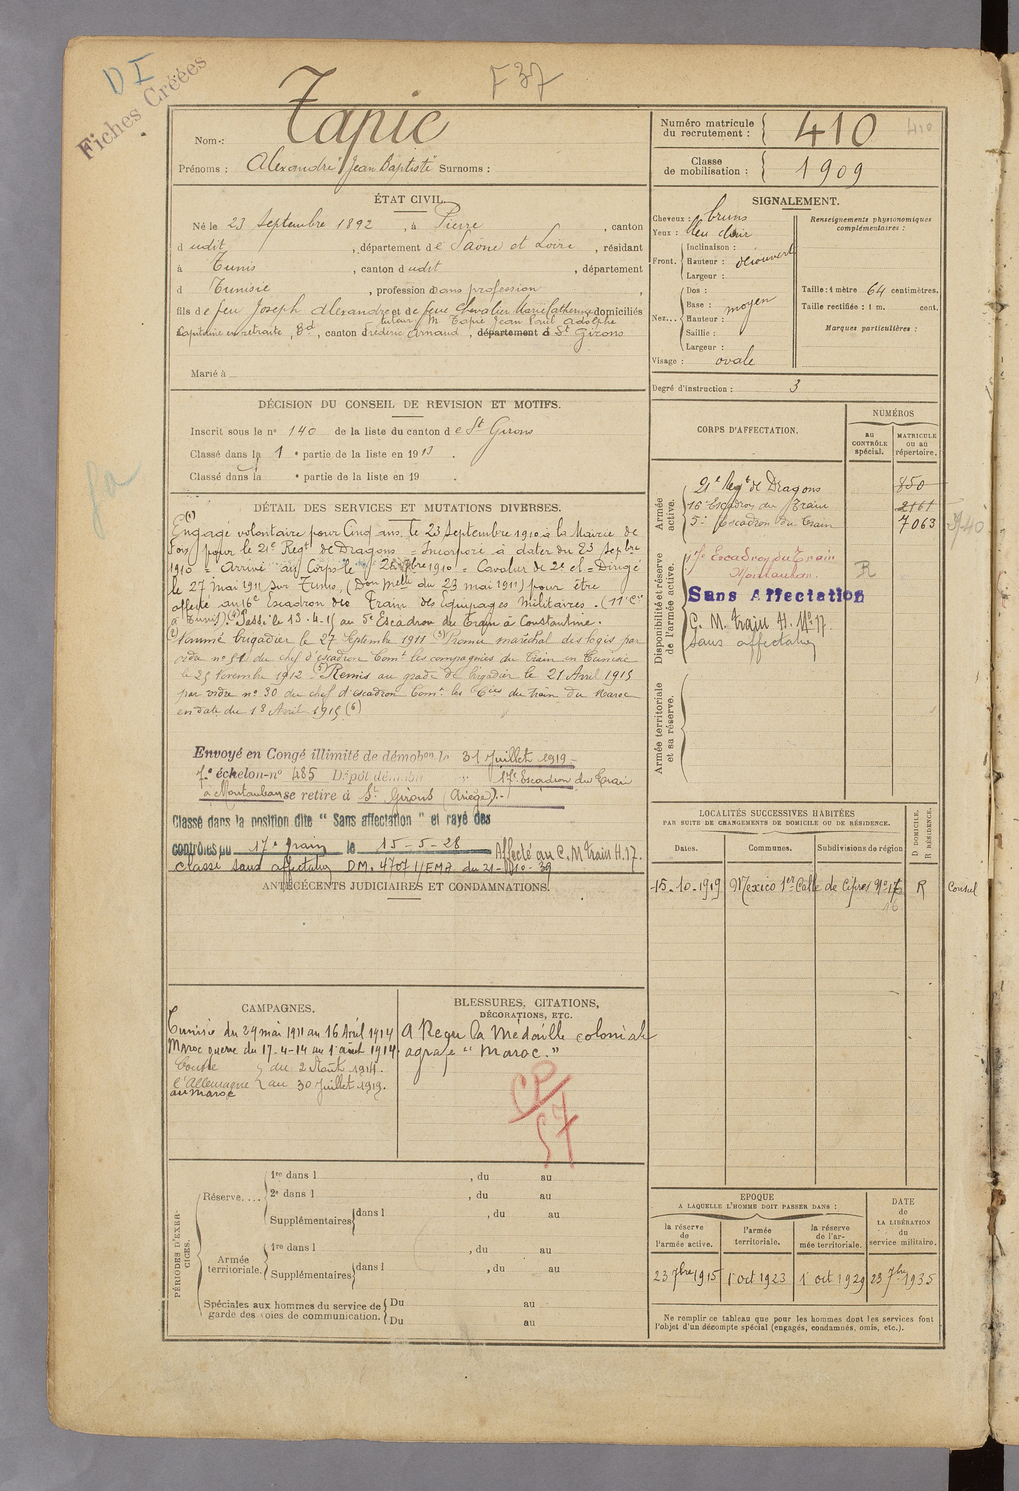 D I
Fiches Créées
F 37
Nom : Tapie
Prénoms : Alexandre Jean Baptiste Surnoms :
Numéro matricule du recrutement : 410 410
Classe de mobilisation : 1909
ÉTAT CIVIL.
Né le 23 Septembre 1892, à Pierre, canton
dudit, département de Saône et Loire, résidant
à Tunis, canton dudit, département
d Tunisie, profession Sans profession,
fils de feu Joseph Alexandre et de feue Chevalier Marie Catherine domiciliés
tuteur M. Tapie Jean Paul Adolphe
Capitaine en retraite, Bd, canton Frédéric Arnaud, département d St Girons
Marié à
DÉCISION DU CONSEIL DE REVISION ET MOTIFS.
Inscrit sous le n° 140 de la liste du canton de St Girons
Classé dans la 1e partie de la liste en 1913.
Classé dans la e partie de la liste en 19 .
DÉTAIL DES SERVICES ET MUTATIONS DIVERSES.
(1) Engagé volontaire pour Cinq ans, le 23 Septembre 1910 à la Mairie de
Foix pour le 21e Regt de Dragons = Incorporé à dater du 23 Sepbre
1910 = Arrivé au Corps le 1910 = Cavalier de 2e cl = Dirigé
le 27 Mai 1911 sur Tunis, (Don Melle du 23 mai 1911) pour être
affecté au 16e Escadron des Train des Equipages Militaires. (11e Cie
à Tunis). Passé le 13.4.15 au 5e Escadron du Train à Constantine.
(2) Nommé brigadier le 27 Septembre 1911 (3) Promu maréchal des logis par
ordre n° 51 du chef d'escadron Comt les compagnies du Train en Tunisie
le 25 Novembre 1912 (5) Remis au grade de brigadier le 21 Avril 1915
par ordre n° 30 du chef d'escadron Comt les Cies du Train du Maroc
en date du 13 Avril 1915 (6)
Envoyé en Congé illimité de démobon le 31 Juillet 1919 -
7e échelon - n° 485 Dépôt démob 17e Escadron du Train
à Montauban se retire à St Girons (Ariège).-
Classé dans la position dite "Sans affectation" et rayé des
contrôles du 17e train le 15-5-28 Affecté au C.M Train H.17.
Classé sans affectation DM. 4707 1/EMA du 21-10-39
ANTÉCÉDENTS JUDICIAIRES ET CONDAMNATIONS.
CAMPAGNES.
Tunisie du 29 mai 1911 au 16 Avril 1914
Maroc guerre du 17-4-14 au 1er août 1914.
Contre l'Allemagne au Maroc
du 2 Août 1914.
au 30 Juillet 1919.
BLESSURES, CITATIONS,
DÉCORATIONS, ETC.
A Reçu la Médaille coloniale
agrafe "Maroc."
PÉRIODES D'EXERCICES.
Réserve....
1re dans l , du au
2e dans l , du au
Supplémentaires dans l , du au
Armée territoriale.
1re dans l , du au
Supplémentaires dans l , du au
Spéciales aux hommes du service de garde des voies de communication.
Du au
Du au
SIGNALEMENT.
Cheveux : bruns
Yeux : bleu clair
Front. Inclinaison :
Hauteur : découvert
Largeur :
Nez... Dos :
Base : moyen
Hauteur :
Saillie :
Largeur :
Visage : ovale
Renseignements physionomiques complémentaires :
Taille : 1 mètre 64 centimètres.
Taille rectifiée : 1 m. cent.
Marques particulières :
Degré d'instruction : 3
CORPS D'AFFECTATION.
NUMÉROS
au CONTRÔLE spécial.
MATRICULE ou au répertoire.
Armée active.
21e Regt de Dragons 850
16e Escadron du Train 2161
5e Escadron du Train 7063
Disponibilité et réserve de l'armée active.
17e Escadron du Train
Montauban. R
Sans Affectation
C. M. Train H. N° 17
sans affectation
Armée territoriale et sa réserve.
LOCALITÉS SUCCESSIVES HABITÉES
PAR SUITE DE CHANGEMENTS DE DOMICILE OU DE RÉSIDENCE.
D DOMICILE. R RÉSIDENCE.
Dates. Communes. Subdivisions de région
15-10-1919 Mexico 1er Calle de Cipres N° 176 R Consul
16
ÉPOQUE
A LAQUELLE L'HOMME DOIT PASSER DANS :
DATE de LA LIBÉRATION du service militaire.
la réserve de l'armée active.
l'armée territoriale.
la réserve de l'armée territoriale.
23 7bre 1915 1 oct 1923 1 oct 1929 23 7bre 1935
Ne remplir ce tableau que pour les hommes dont les services font
l'objet d'un décompte spécial (engagés, condamnés, omis, etc.).